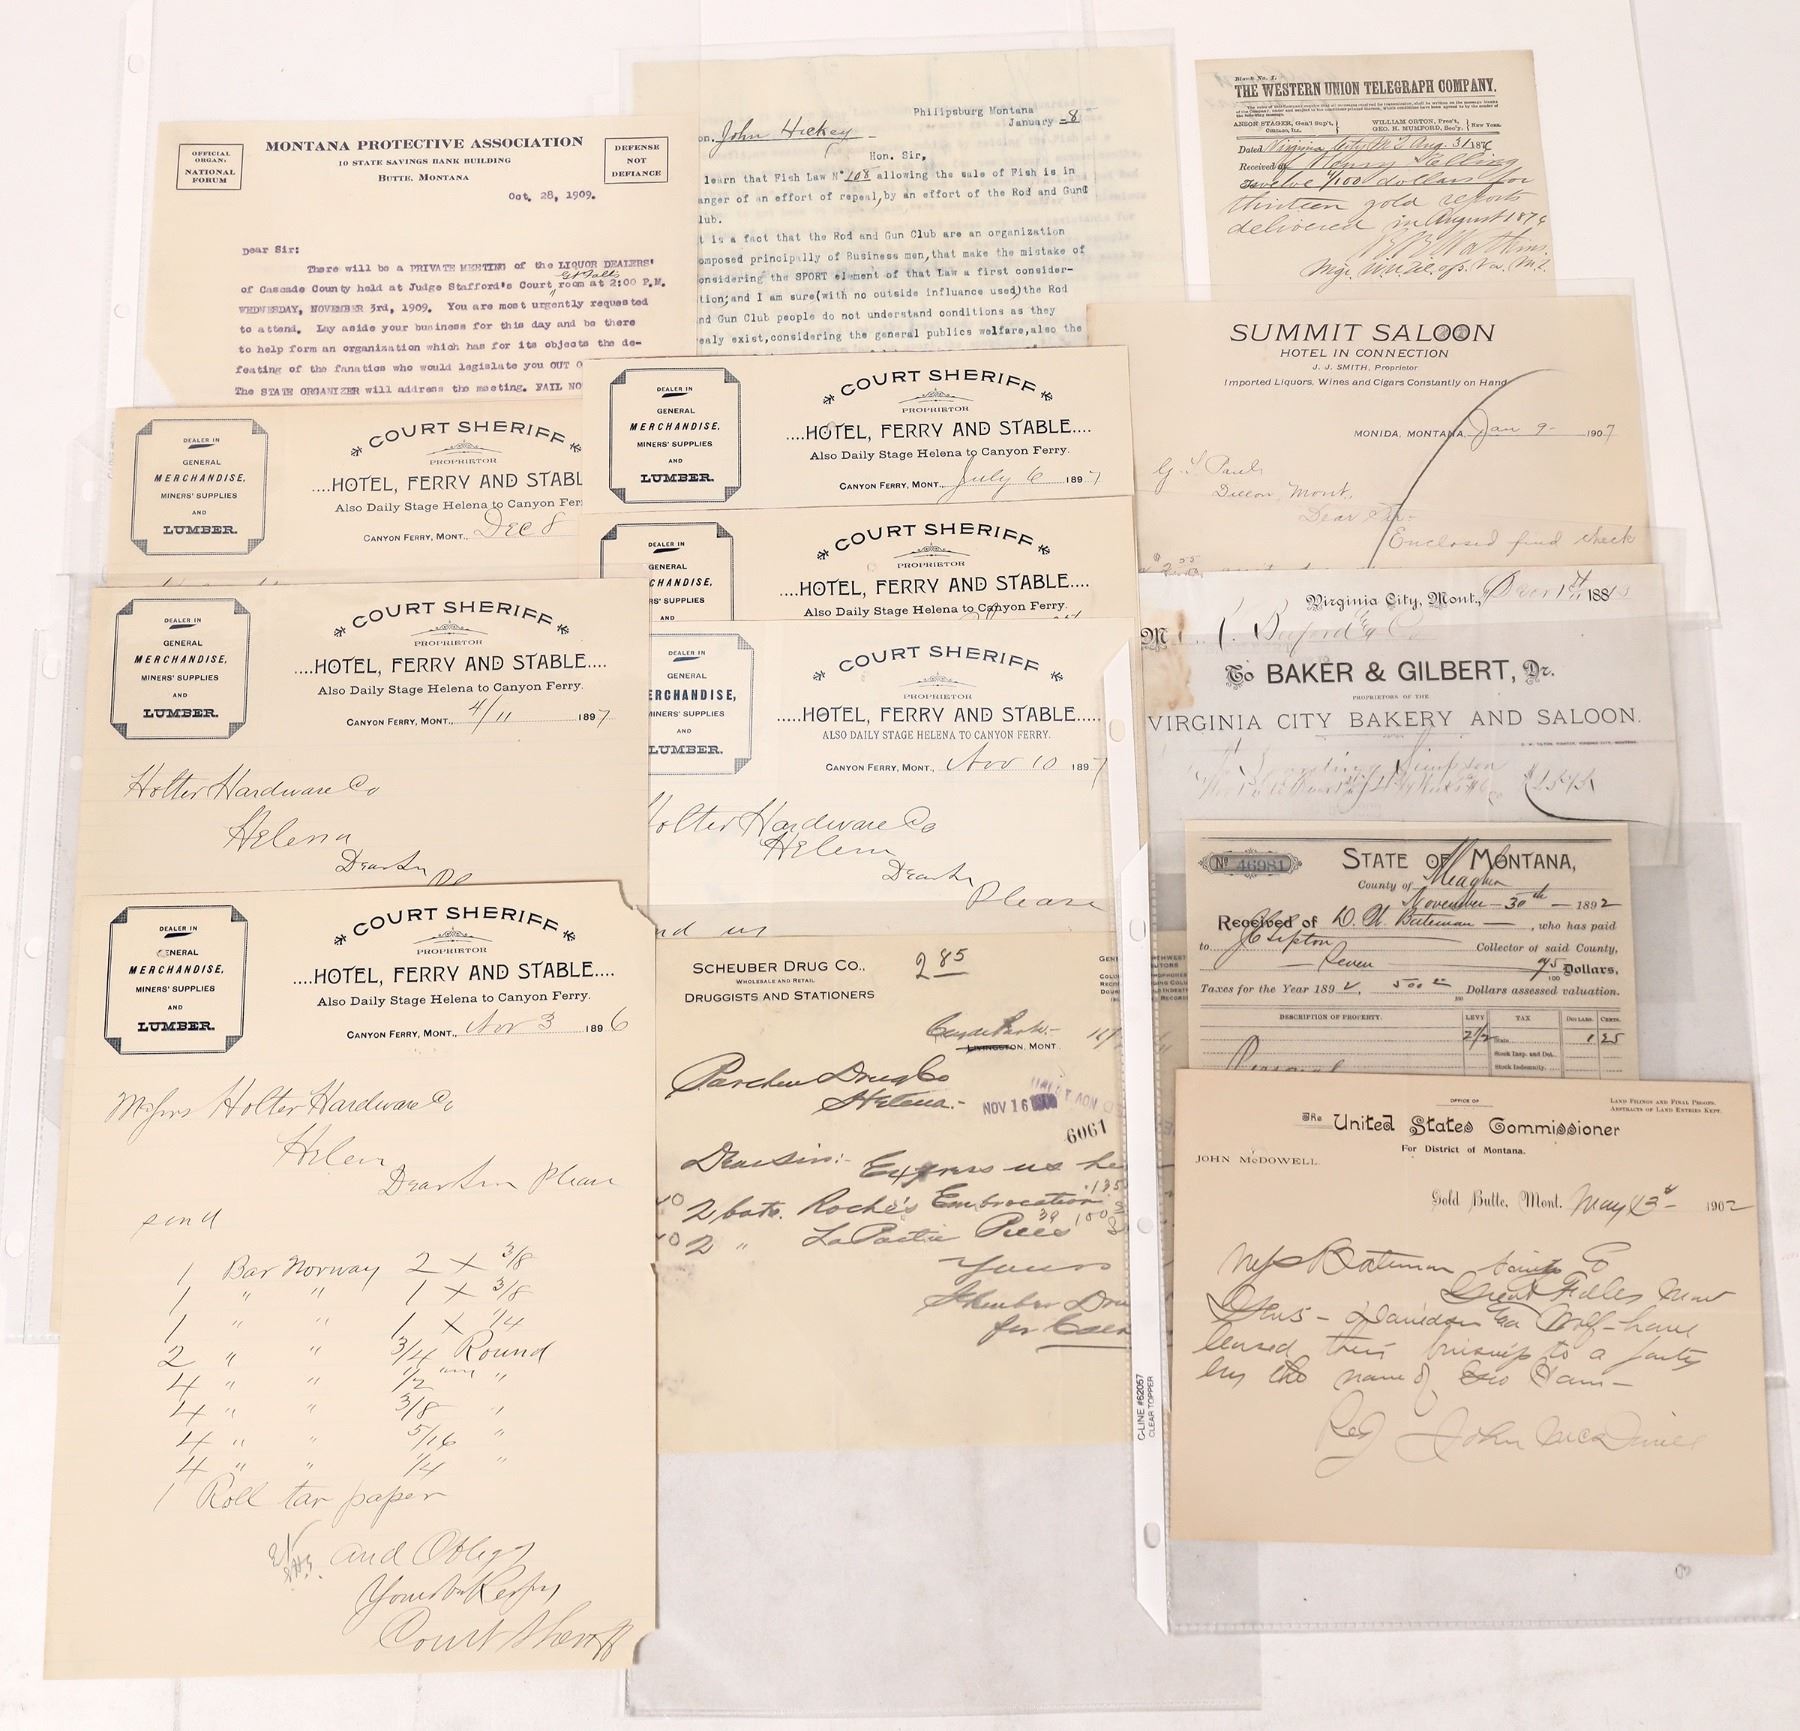 OFFICIAL
ORGAN:
NATIONAL
FORUM
MONTANA PROTECTIVE ASSOCIATION
10 STATE SAVINGS BANK BUILDING
BUTTE, MONTANA
DEFENSE
NOT
DEFIANCE
Oct. 28, 1909.
Dear Sir:
There will be a PRIVATE MEETING of the LIQUOR DEALERS'
Gt Falls
of Cascade County held at Judge Stafford's Court room at 2:00 P.M.
WEDNESDAY, NOVEMBER 3rd, 1909. You are most urgently requested
to attend. Lay aside your business for this day and be there
to help form an organization which has for its objects the de-
feating of the fanatics who would legislate you OUT O
The STATE ORGANIZER will address the meeting. FAIL NO
Philipsburg Montana
January -8
on. John Hickey -
Hon. Sir,
learn that Fish Law No 108 allowing the sale of Fish is in
anger of an effort of repeal, by an effort of the Rod and Gun
lub.
t is a fact that the Rod and Gun Club are an organization
omposed principally of Business men, that make the mistake of
onsidering the SPORT element of that Law a first consider-
tion; and I am sure (with no outside influance used) the Rod
nd Gun Club people do not understand conditions as they
ealy exist, considering the general publics welfare, also the
Blank No. 1.
THE WESTERN UNION TELEGRAPH COMPANY.
ANSON STAGER, Gen'l Sup't,
Chicago, Ill.
WILLIAM ORTON, Pres't,
GEO. H. MUMFORD, Sec'y.
New York.
Dated Virginia City M T Aug. 31 1876
Received of Henry
Twelve /100 dollars for
thirteen gold reports
delivered in August 1876
Watkins
Mgr. W.U. Tel. of. Va. M.T.
SUMMIT SALOON
HOTEL IN CONNECTION
J. J. SMITH, Proprietor
Imported Liquors, Wines and Cigars Constantly on Hand
MONIDA, MONTANA, Jan 9 - 1907
Dillon, Mont.,
Dear Sir:-
Enclosed find check
DEALER IN
GENERAL
MERCHANDISE,
MINERS' SUPPLIES
AND
LUMBER.
COURT SHERIFF
PROPRIETOR
....HOTEL, FERRY AND STABLE....
Also Daily Stage Helena to Canyon Ferry.
CANYON FERRY, MONT., July 6 1897
DEALER IN
GENERAL
MERCHANDISE,
MINERS' SUPPLIES
AND
LUMBER.
COURT SHERIFF
PROPRIETOR
....HOTEL, FERRY AND STABL
Also Daily Stage Helena to Canyon Fer
CANYON FERRY, MONT., Dec 8
DEALER IN
GENERAL
MERCHANDISE,
RS' SUPPLIES
AND
COURT SHERIFF
PROPRIETOR
HOTEL, FERRY AND STABLE....
Also Daily Stage Helena to Canyon Ferry.
DEALER IN
GENERAL
MERCHANDISE,
MINERS' SUPPLIES
AND
LUMBER.
COURT SHERIFF
PROPRIETOR
....HOTEL, FERRY AND STABLE....
Also Daily Stage Helena to Canyon Ferry.
CANYON FERRY, MONT., 4/11 1897
Holter Hardware Co
Helena
Dear Sir
DEALER IN
GENERAL
ERCHANDISE,
MINERS' SUPPLIES
AND
LUMBER.
COURT SHERIFF
PROPRIETOR
.....HOTEL, FERRY AND STABLE.....
ALSO DAILY STAGE HELENA TO CANYON FERRY.
CANYON FERRY, MONT., Nov 10 1897
Holter Hardware Co
Helena
Dear Sir
Please
nd us
Virginia City, Mont., 1st 188
M
To BAKER & GILBERT, Dr.
PROPRIETORS OF THE
VIRGINIA CITY BAKERY AND SALOON.
No 46981
STATE OF MONTANA,
County of Meagher
November - 30th - 1892
Received of D. W. Bateman - , who has paid
to J C Tipton Collector of said County,
- Seven - 95/100 Dollars,
Taxes for the Year 1892, 500 Dollars assessed valuation.
DESCRIPTION OF PROPERTY. LEVY TAX DOLLARS. CENTS.
2 1/2 State 1 25
Stock Insp. and Det.
Personal Stock Indemnity.
DEALER IN
GENERAL
MERCHANDISE,
MINERS' SUPPLIES
AND
LUMBER.
COURT SHERIFF
PROPRIETOR
....HOTEL, FERRY AND STABLE....
Also Daily Stage Helena to Canyon Ferry.
CANYON FERRY, MONT., Nov 3 1896
Messrs Holter Hardware Co
Helena
Dear Sir Please
send
1 Bar Norway 2 x 3/8
1 " " 1 x 3/8
1 " " 1 x 1/4
2 " " 3/4 Round
4 " " 1/2 "
4 " " 3/8 "
4 " " 5/16 "
4 " " 1/4 "
1 Roll tar paper
and Oblige
Yours Resp'y
Court Sheriff
SCHEUBER DRUG CO.,
WHOLESALE AND RETAIL
DRUGGISTS AND STATIONERS
2 85
Clyde Park -
LIVINGSTON, MONT.
Parchen Drug Co
Helena. -
NOV 16
6061
Dear Sirs:- Express us he
2 bots. Roche's Embrocation
2 " Pills
Yours
Scheuber Dru
for
C-LINE #62057
CLEAR TOPPER
OFFICE OF
The United States Commissioner
For District of Montana.
LAND FILINGS AND FINAL PROOFS.
ABSTRACTS OF LAND ENTRIES KEPT.
JOHN McDOWELL
Gold Butte, Mont. May 3d 1902
Bateman
Great Falls Mont
Gents - Davidson & Wolf - have
leased their to a party
by the name of Geo
John McDowell